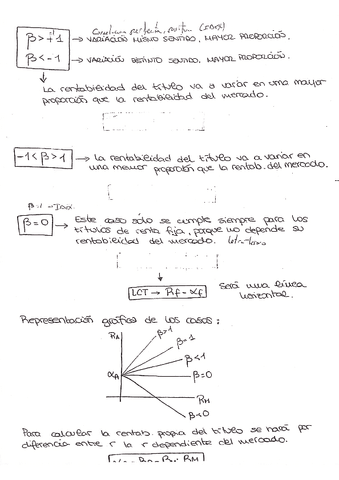 β>+1 → VARIACIÓN MISMO SENTIDO, MAYOR PROPORCIÓN.
β<-1 → VARIACIÓN DISTINTO SENTIDO, MAYOR PROPORCIÓN.
La rentabilidad del título va a variar en una mayor
proporción que la rentabilidad del mercado.
-1<β>1 → La rentabilidad del título va a variar en
una menor proporción que la rentab. del mercado.
β=0 → Este caso sólo se cumple siempre para los
títulos de renta fija, porque no depende su
rentabilidad del mercado.
LCT → Rf = αf Será una línea
horizontal.
Representación gráfica de los casos:
RA
β>1
β=1
β<1
αA
β=0
RM
β<0
Para calcular la rentab. propia del título se hará por
diferencia entre r la r dependiente del mercado.